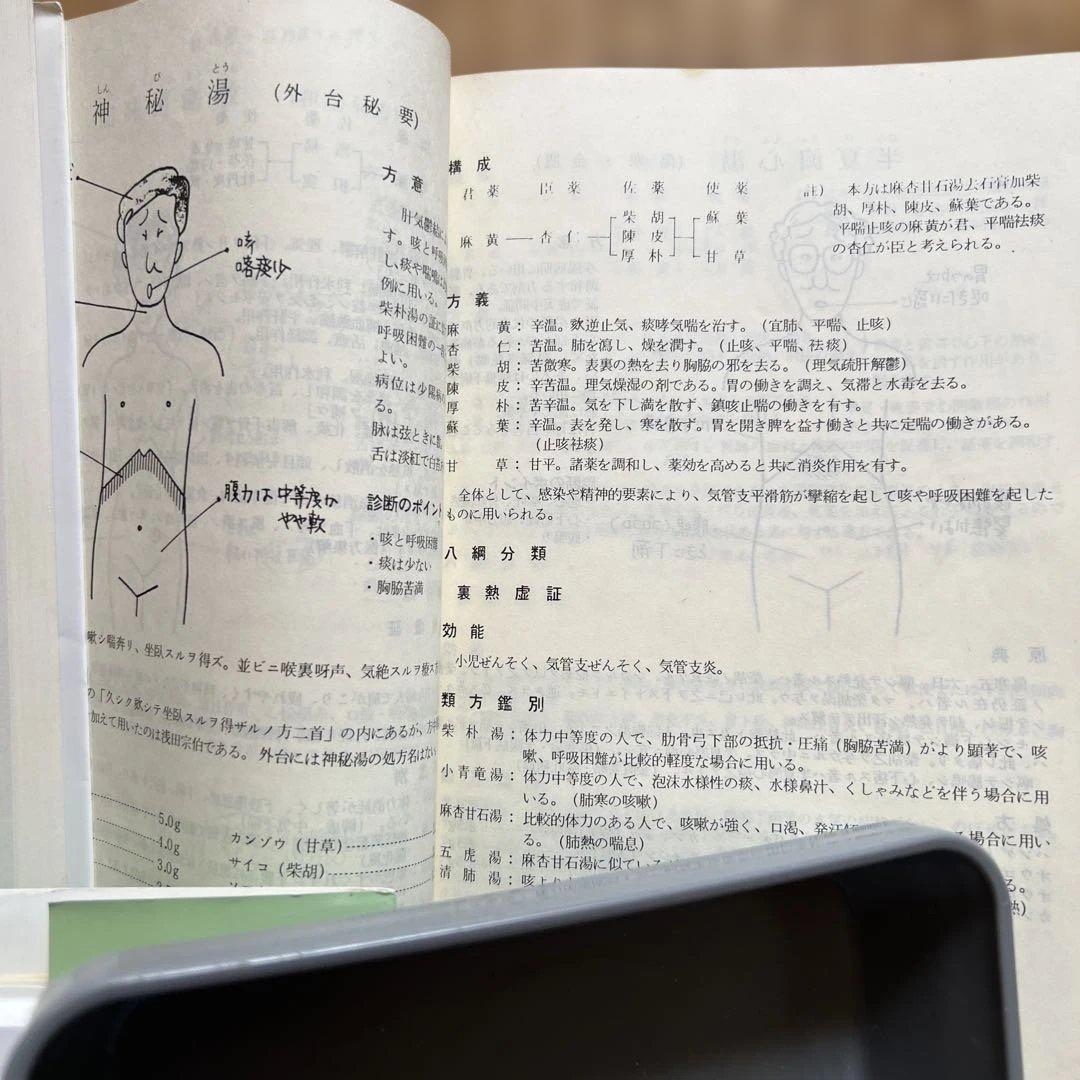 しん ぴ とう
神 秘 湯 (外 台 秘 要)
咳
喀痰少
腹力は中等度か
やや軟
方 意
肝気鬱結
す。咳と呼吸
し、痰や喘鳴は
例に用いる。
柴朴湯の証に
呼吸困難の一
よい。
病位は少陽病
る。
脉は弦ときに
舌は淡紅で白苔
診断のポイント
・咳と呼吸困難
・痰は少ない
・胸脇苦満
嗽シ喘奔リ、坐臥スルヲ得ズ。並ビニ喉裏呀声、気絶スルヲ療ス
の「久シク欬シテ坐臥スルヲ得ザルノ方二首」の内にあるが、方中
加えて用いたのは浅田宗伯である。外台には神秘湯の処方名はない
5.0g カンゾウ(甘草)
4.0g サイコ(柴胡)
3.0g
構 成
君 薬 臣 薬 佐 薬 使 薬
麻 黄 杏 仁 柴 胡 陳 皮 厚 朴 蘇 葉 甘 草
註) 本方は麻杏甘石湯去石膏加柴
胡、厚朴、陳皮、蘇葉である。
平喘止咳の麻黄が君、平喘祛痰
の杏仁が臣と考えられる。
方 義
麻 黄:辛温。欬逆止気、痰哮気喘を治す。(宣肺、平喘、止咳)
杏 仁:苦温。肺を瀉し、燥を潤す。(止咳、平喘、祛痰)
柴 胡:苦微寒。表裏の熱を去り胸脇の邪を去る。(理気疏肝解鬱)
陳 皮:辛苦温。理気燥湿の剤である。胃の働きを調え、気滞と水毒を去る。
厚 朴:苦辛温。気を下し満を散ず、鎮咳止喘の働きを有す。
蘇 葉:辛温。表を発し、寒を散ず。胃を開き脾を益す働きと共に定喘の働きがある。
(止咳祛痰)
甘 草:甘平。諸薬を調和し、薬効を高めると共に消炎作用を有す。
全体として、感染や精神的要素により、気管支平滑筋が攣縮を起して咳や呼吸困難を起した
ものに用いられる。
八 綱 分 類
裏 熱 虚 証
効 能
小児ぜんそく、気管支ぜんそく、気管支炎。
類 方 鑑 別
柴 朴 湯:体力中等度の人で、肋骨弓下部の抵抗・圧痛(胸脇苦満)がより顕著で、咳
嗽、呼吸困難が比較的軽度な場合に用いる。
小 青 竜 湯:体力中等度の人で、泡沫水様性の痰、水様鼻汁、くしゃみなどを伴う場合に用
いる。(肺寒の咳嗽)
麻杏甘石湯:比較的体力のある人で、咳嗽が強く、口渇、発汗 る場合に用い
る。(肺熱の喘息)
五 虎 湯:麻杏甘石湯に似てい
清 肺 湯:咳 る。
熱)